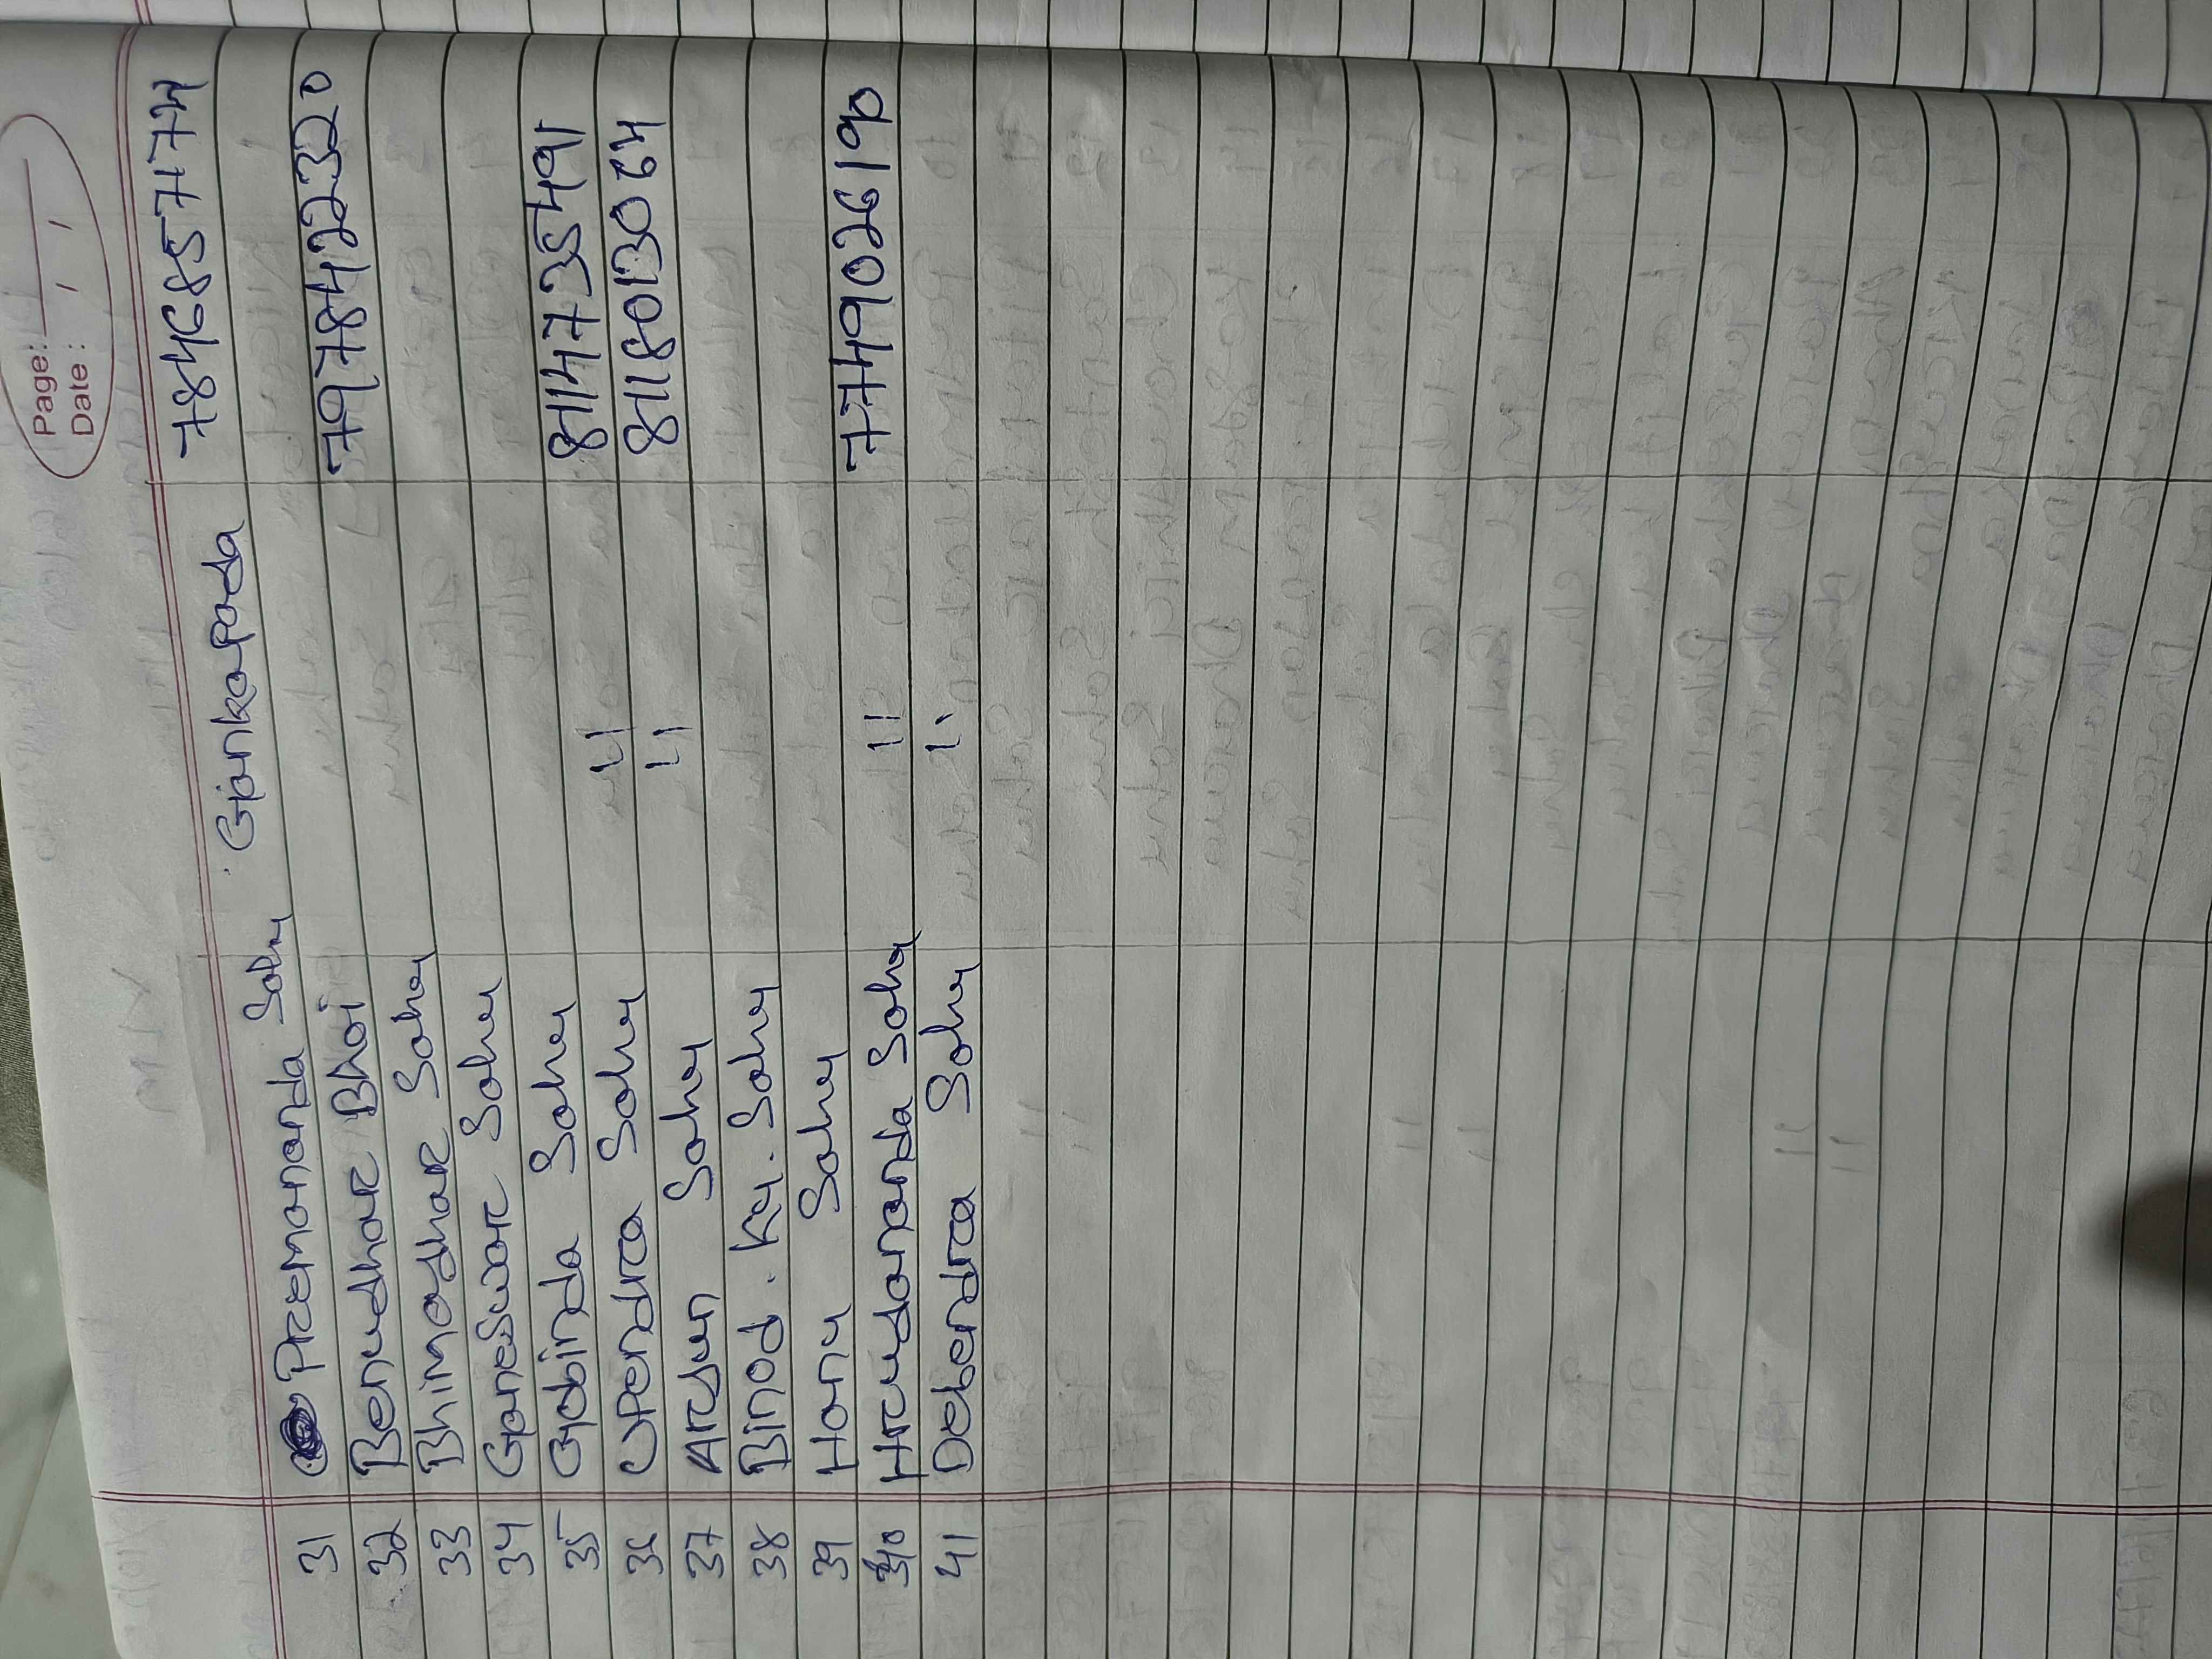 Page:
Date :
31 Premananda Sahu Gankapada 7846857174
32 Benudhar Bhoi 7978422320
33 Bhimadhar Sahu
34 Ganeswar Sahu
35 Gobinda Sahu " 8114735491
36 Upendra Sahu " 8118013064
37 Arjun Sahu
38 Binod. Ku. Sahu
39 Hanu Sahu
40 Hrudananda Sahu " 7749026190
41 Debendra Sahu "